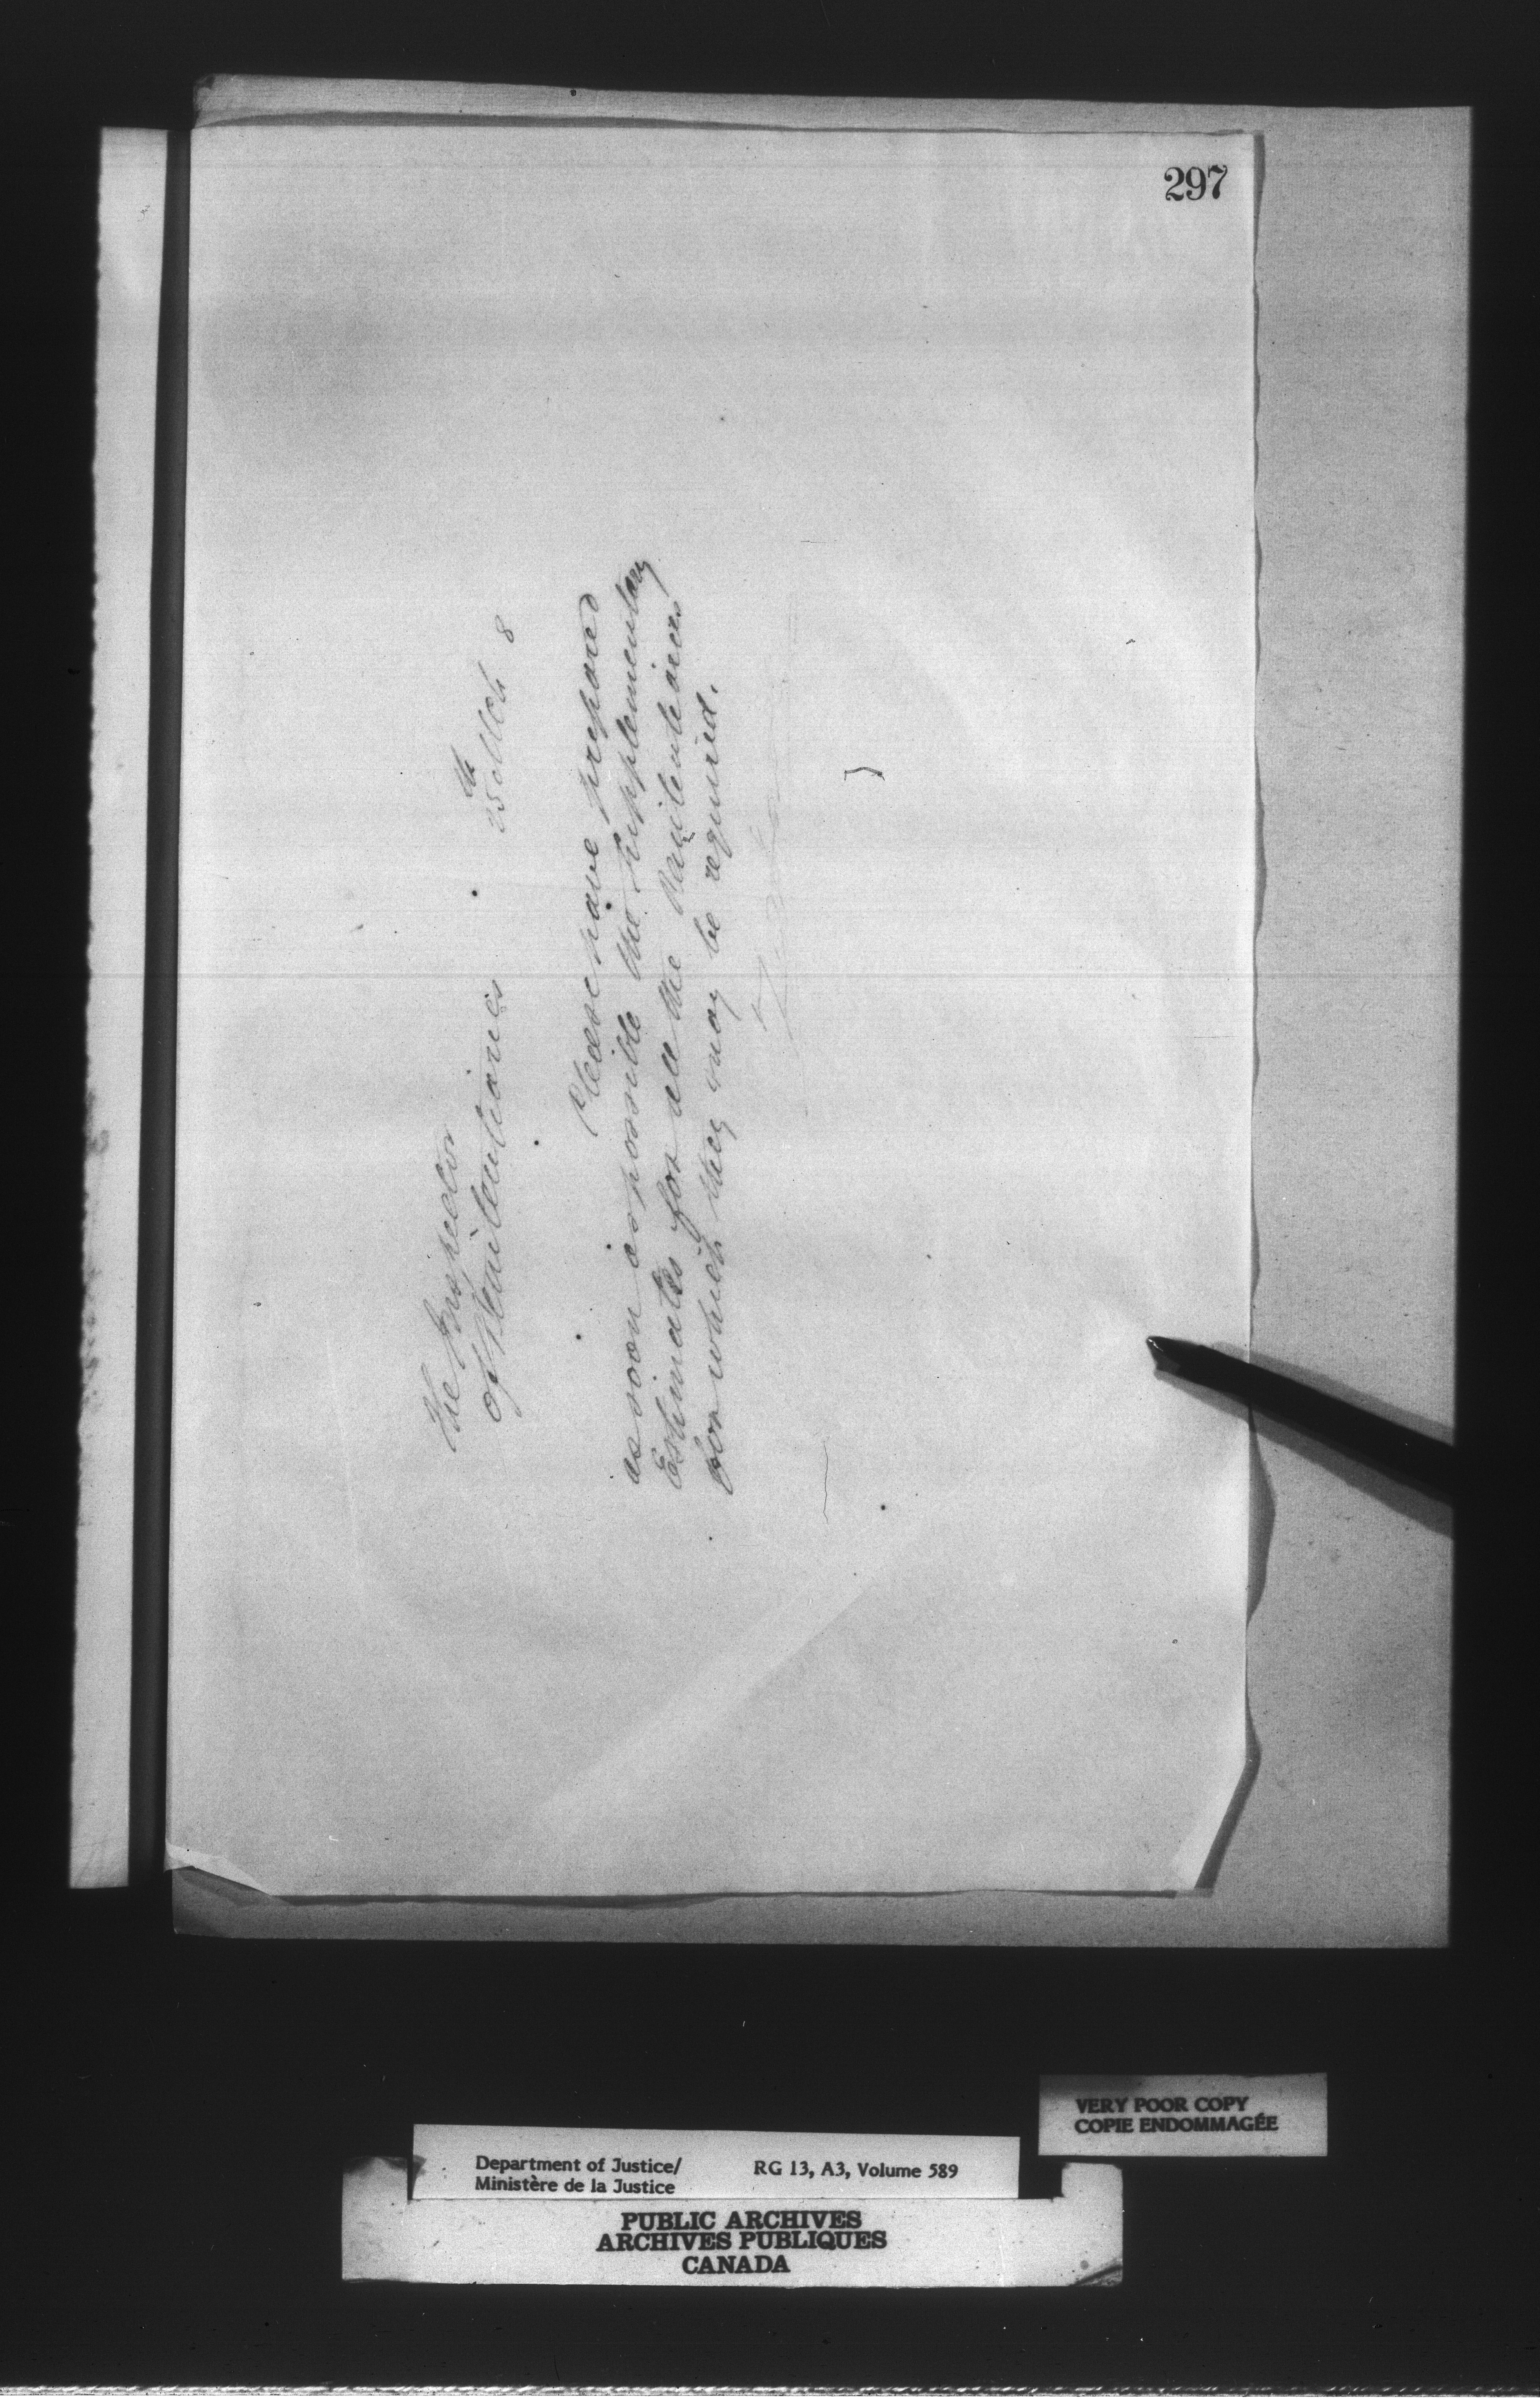 297
The Inspector
of Penitentiaries
25th Mch 8
Please have prepared
as soon as possible the supplementary
Estimates for all the Penitentiaries
for which they may be required.
VERY POOR COPY
COPIE ENDOMMAGÉE
Department of Justice/ RG 13, A3, Volume 589
Ministère de la Justice
PUBLIC ARCHIVES
ARCHIVES PUBLIQUES
CANADA